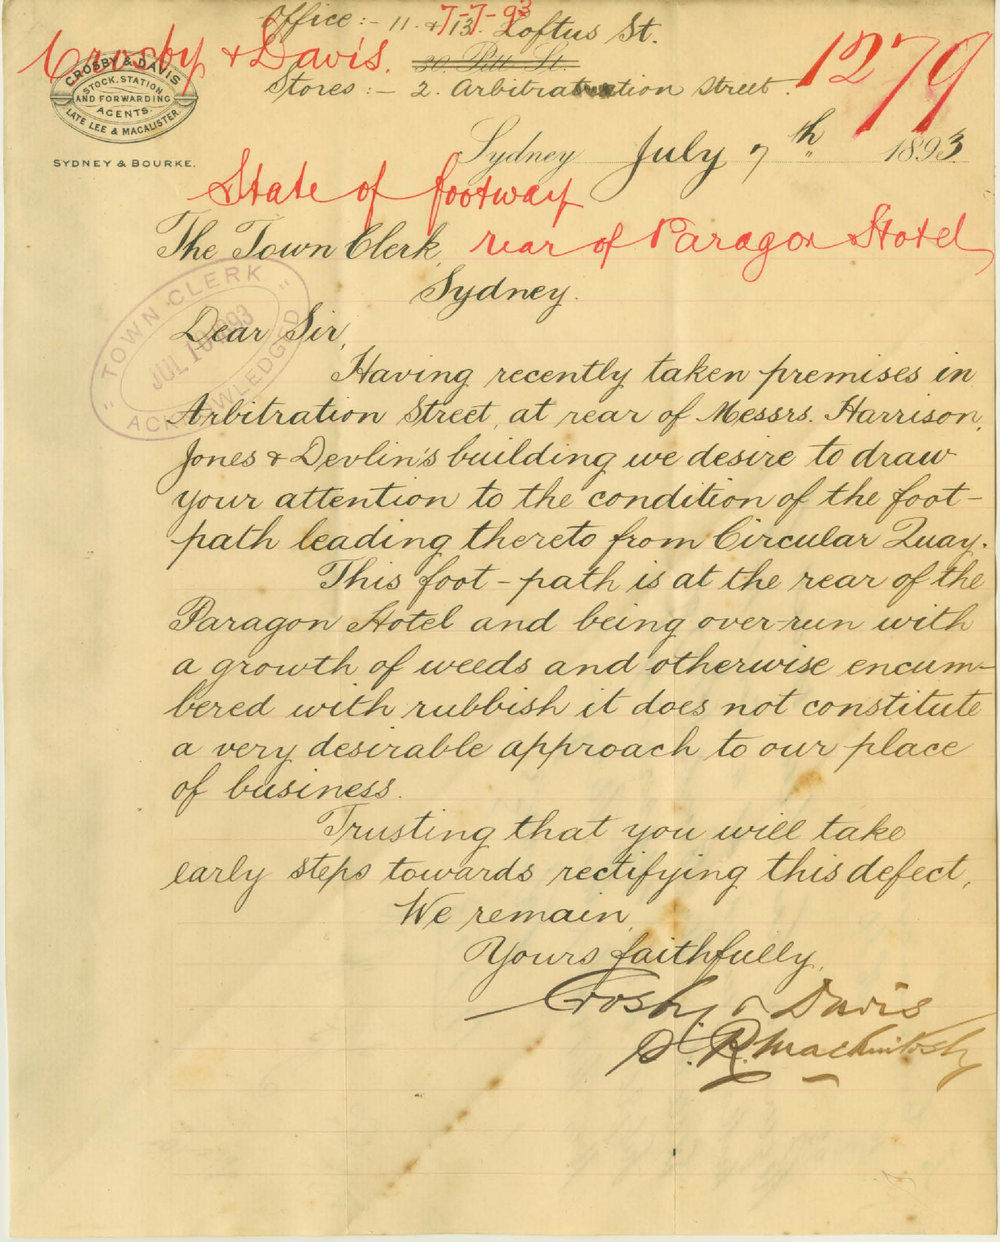 Office :- 11 & 13 Loftus St.
7-7-93
Crosby & Davis.
30 Pitt St.
1279
Stores :- 2. Arbitration Street.
CROSBY & DAVIS
STOCK, STATION
AND FORWARDING
AGENTS.
LATE LEE & MACALISTER.
SYDNEY & BOURKE.
Sydney July 7th 1893
State of footway
The Town Clerk, rear of Paragon Hotel
Sydney.
"TOWN CLERK"
JUL 10 1893
ACKNOWLEDGED
Dear Sir,
Having recently taken premises in
Arbitration Street, at rear of Messrs. Harrison,
Jones & Devlin's building we desire to draw
your attention to the condition of the foot-
path leading thereto from Circular Quay.
This foot-path is at the rear of the
Paragon Hotel and being over-run with
a growth of weeds and otherwise encum-
bered with rubbish it does not constitute
a very desirable approach to our place
of business.
Trusting that you will take
early steps towards rectifying this defect,
We remain,
Yours faithfully,
Crosby & Davis
R. Mackintosh